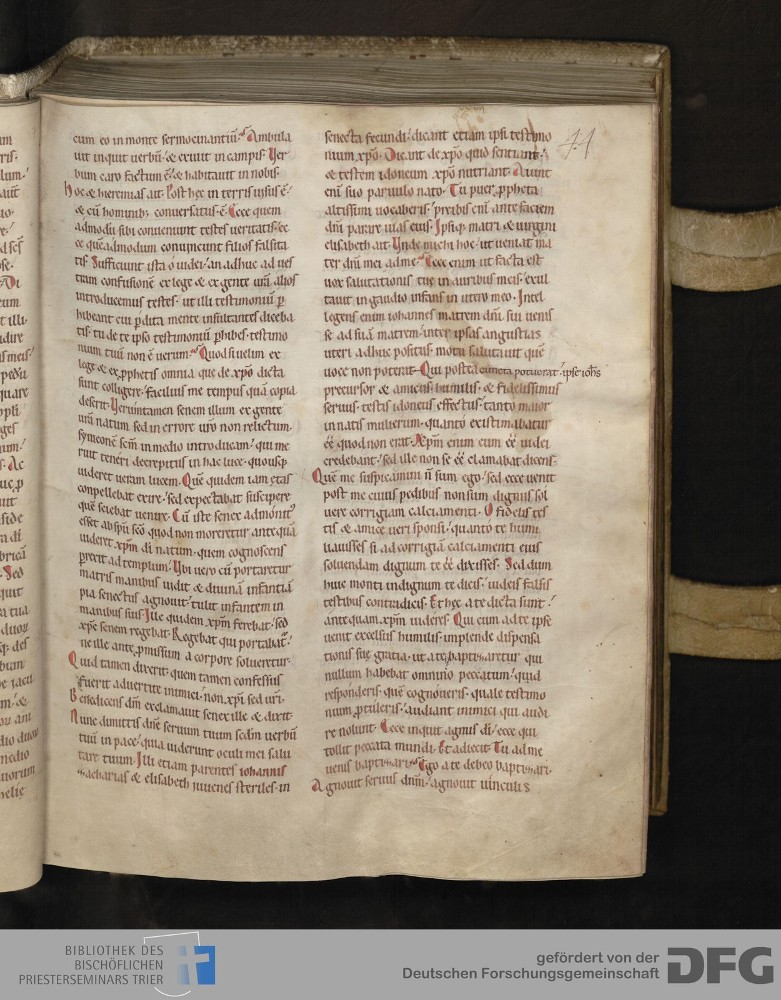 cum eo in monte sermocinantiū. Ambula
uit inquit uerbū. & exiuit in campis. Uer
bum caro factum ē. & habitauit in nobis.
Hoc & hieremias ait. Post hęc in terris uisus ē.
& cū hominib; conuersatus ē. Ecce quem
admodū sibi conueniunt testes ueritatis. ec
ce quēadmodum conuincunt filios falsita
tis. Sufficiunt ista o iudei. an adhuc ad ues
tram confusionē ex lege & ex gente urā. alios
introducemus testes. ut illi testimoniū p
hibeant cui pdita mente insultantes diceba
tis. tu de te ipso testimoniū phibes. testimo
nium tuū non ē uerum. Quod si uelim ex
lege & ex pphetis omnia quę de xpō dicta
sunt colligere. facilius me tempus quā copia
deserit. Ueruntamen senem illum ex gente
urā natum sed in errore uro non relictum.
symeonē scm in medio introducam. qui me
ruit teneri decrepitus in hac luce. quousq;
uideret ueram lucem. Quē quidem iam ętas
conpellebat exire. sed expectabat suscipere
quē sciebat uenire. Cū iste senex admonit⁹
esset a spū scō quod non moreretur antequā
uideret xpm dī natum. quem cognoscens
perrexit ad templum. Ubi uero cū portaretur
matris manibus uidit & diuinā infantiā
pia senectus agnouit. tulit infantem in
manibus suis. Ille quidem xpm ferebat. sed
xpc senem regebat. Regebat qui portabat.
ne ille ante pmissum a corpore solueretur.
Quid tamen dixerit. quem tamen confessus
fuerit aduertite inimici. non xpi sed uri.
Benedicens dm exclamauit senex ille & dixit.
Nunc dimittis dne seruum tuum scdm uerbū
tuū in pace. quia uiderunt oculi mei salu
tare tuum. Illi etiam parentes iohannis
zacharias & elisabeth iuuenes steriles. in
senecta fecundi. dicant etiam ipsi testimo
nium xpō. Dicant de xpō quid sentiant.
& testem idoneum xpō nutriant. Aiunt
enī suo paruulo nato. Tu puer ppheta
altissimi uocaberis. preibis enī ante faciem
dni parare uias eius. Ipsiq; matri & uirgini
elisabeth ait. Unde michi hoc. ut ueniat ma
ter dni mei ad me. Ecce enim ut facta est
uox salutationis tuę in auribus meis. exul
tauit in gaudio infans in utero meo. Intel
legens enim iohannes matrem dnī sui uenis
se ad suā matrem. inter ipsas angustias
uteri adhuc positus. motu salutauit quē
uoce non poterat. Qui postea cuncta potuerat. ipse iohs
precursor & amicus humilis. & fidelissimus
seruus. testis idoneus effectus. tantō maior
in natis mulierum. quantō existimabatur
eē quod non erat. Xpm enim eum eē iudei
credebant. sed ille non se eē clamabat dicens.
Quē me suspicamini ñ sum ego. sed ecce uenit
post me cuius pedibus non sum dignus sol
uere corrigiam calciamenti. O fidelis tes
tis & amice ueri sponsi. quanto te humi
liauisses si ad corrigiā calciamenti eius
soluendam dignum te eē dixisses. Sed dum
huic monti indignum te dicis. iudeis falsis
testibus contradicis. Et hęc a te dicta sunt.
antequam xpm uideres. Qui cum ad te ipse
uenit excelsus humilis. implende dispensa
tionis suę gratia. ut a te baptizaretur qui
nullum habebat omnino peccatum. quid
responderis. quē cognoueris. quale testimo
nium ptuleris. audiant inimici qui audi
re nolunt. Ecce inquit agnus dī. ecce qui
tollit peccata mundi. Et adiecit. Tu ad me
uenis baptizari. Ego a te debeo baptizari.
Agnouit seruus dnm. agnouit uinculis
BIBLIOTHEK DES
BISCHÖFLICHEN
PRIESTERSEMINARS TRIER
gefördert von der
Deutschen Forschungsgemeinschaft
DFG